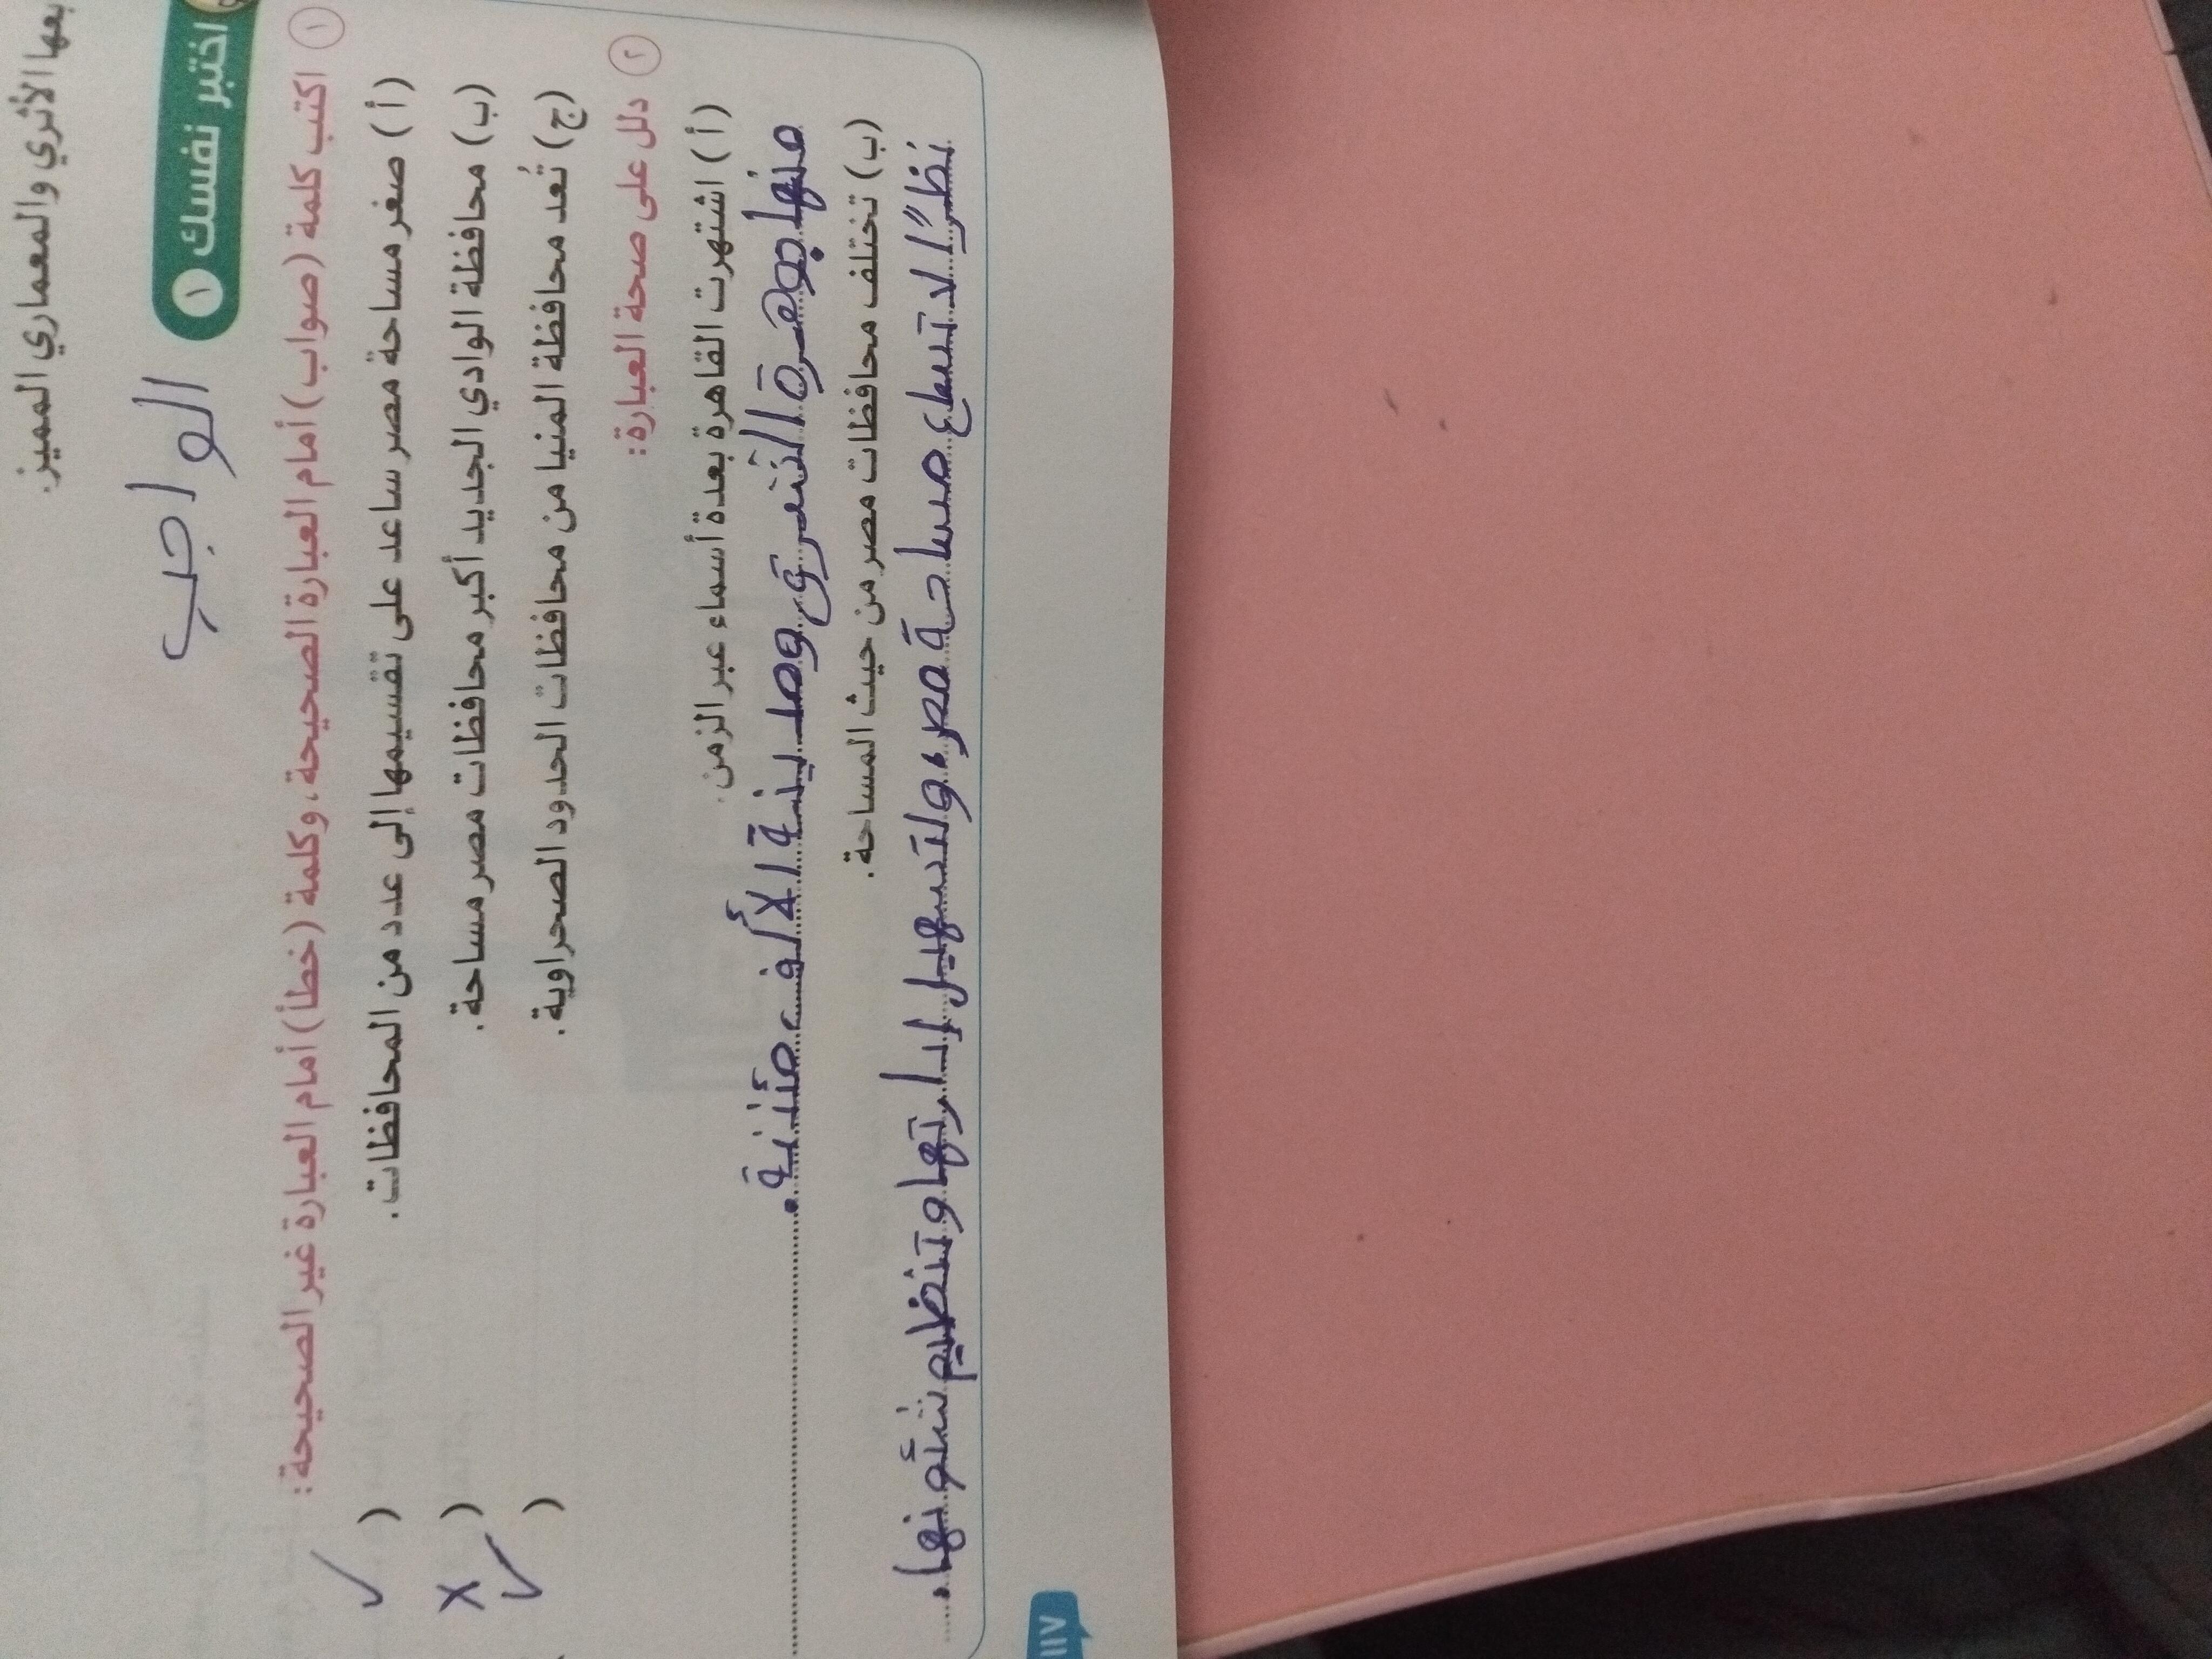 بعها الأثري والمعماري المميز.
اختبر نفسك ١
الواجب
١ اكتب كلمة (صواب) أمام العبارة الصحيحة، وكلمة (خطأ) أمام العبارة غير الصحيحة:
(أ) صغر مساحة مصر ساعد على تقسيمها إلى عدد من المحافظات. ( ✓
(ب) محافظة الوادي الجديد أكبر محافظات مصر مساحة. ( x
(ج) تُعد محافظة المنيا من محافظات الحدود الصحراوية. ( ✓
٢ دلل على صحة العبارة:
(أ) اشتهرت القاهرة بعدة أسماء عبر الزمن.
منها جوهرة الشرق ومدينة الألف مئذنة.
(ب) تختلف محافظات مصر من حيث المساحة.
نظرًا لاتساع مساحة مصر، ولتسهيل إدارتها وتنظيم شئونها.
١١٧